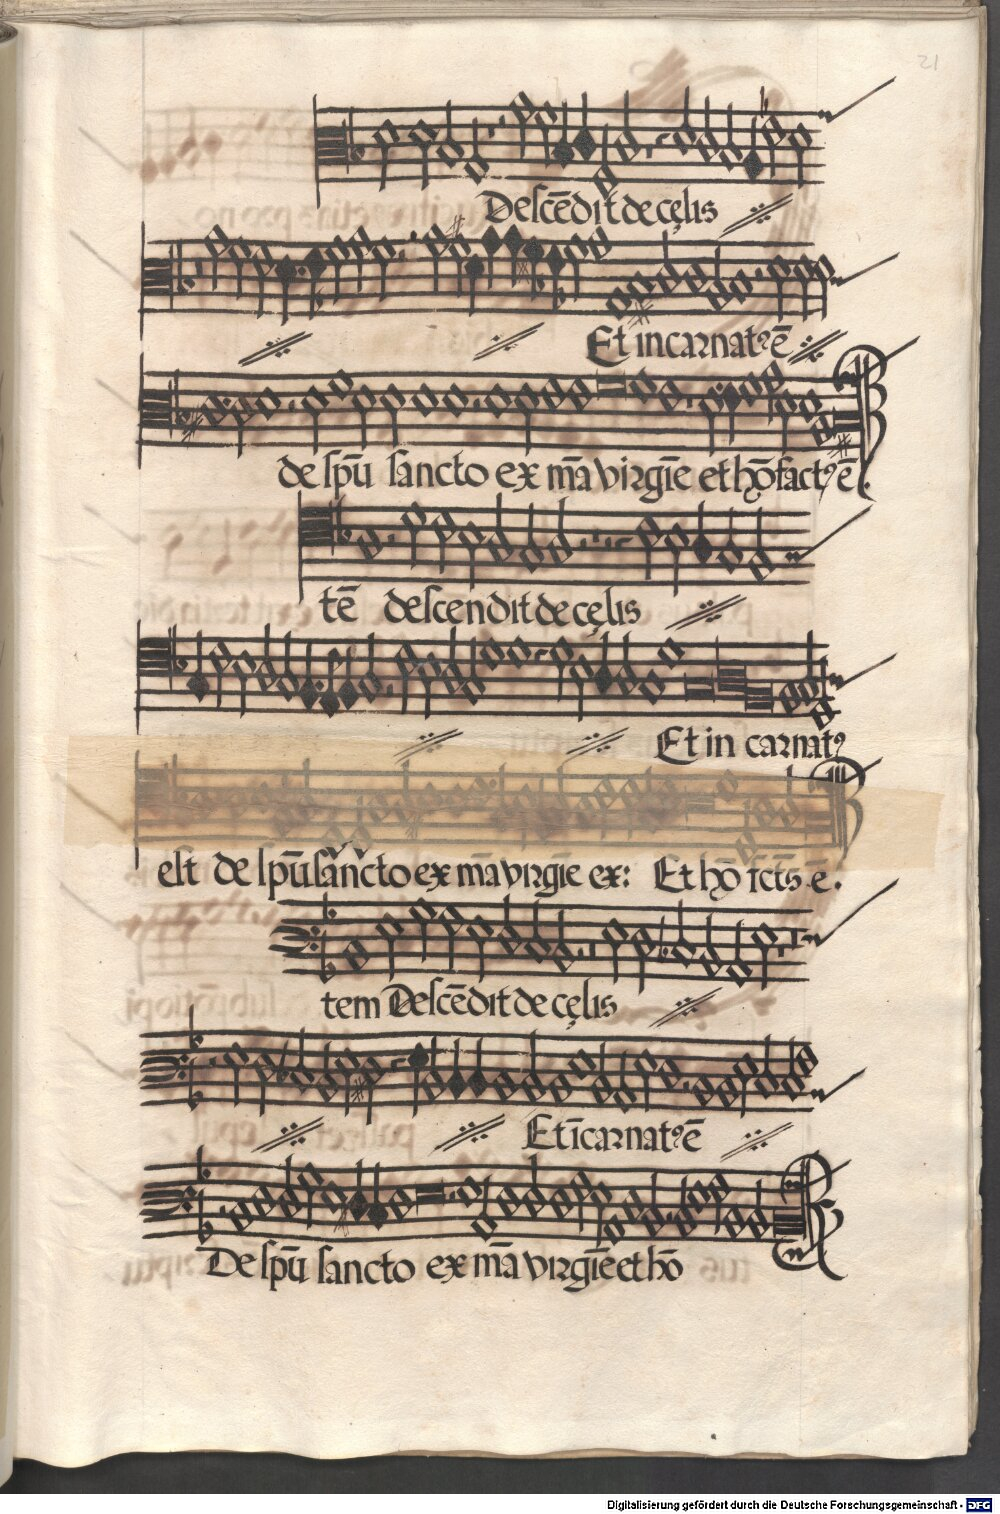 21
Descēdit de cęlis
Et incarnatꝰ ē
de spū sancto ex mā virgīe et hō factꝰ ē.
tē descendit de cęlis
Et in carnatꝰ
est de spū sancto ex mā virgīe ex: Et hō fcts ē.
tem Descēdit de cęlis
Et īcarnatꝰ ē
De spū sancto ex mā virgīe et hō
Digitalisierung gefördert durch die Deutsche Forschungsgemeinschaft - DFG